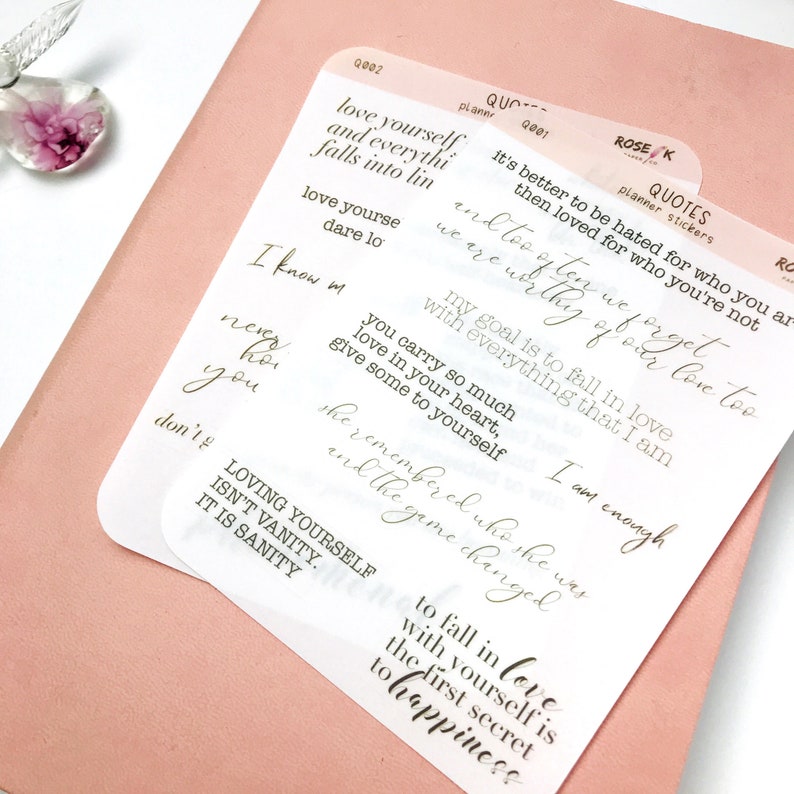 Q002
QUOTES
planner
ROSE K
PAPER CO
love yourself
and everythi
falls into lin
love yourse
dare lo
I know m
never
ho
you
don't g
Q001
QUOTES
planner stickers
ROS
it's better to be hated for who you ar
then loved for who you're not
and too often we forget
we are worthy of our love too
my goal is to fall in love
with everything that I am
you carry so much
love in your heart,
give some to yourself
I am enough
she remembered who she was
and the game changed
LOVING YOURSELF
ISN'T VANITY.
IT IS SANITY
to fall in love
with yourself is
the first secret
to happiness